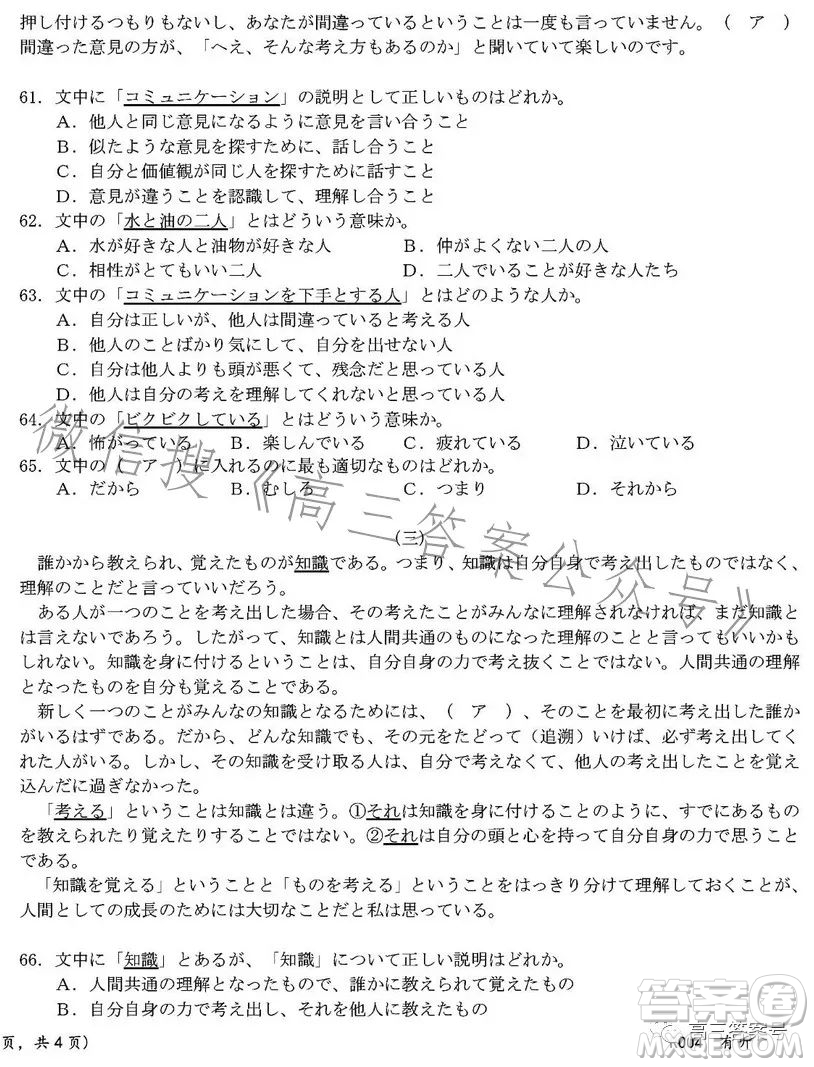 押し付けるつもりもないし、あなたが間違っているということは一度も言っていません。（　ア　）
間違った意見の方が、「へえ、そんな考え方もあるのか」と聞いていて楽しいのです。
61．文中に「コミュニケーション」の説明として正しいものはどれか。
A．他人と同じ意見になるように意見を言い合うこと
B．似たような意見を探すために、話し合うこと
C．自分と価値観が同じ人を探すために話すこと
D．意見が違うことを認識して、理解し合うこと
62．文中の「水と油の二人」とはどういう意味か。
A．水が好きな人と油物が好きな人　B．仲がよくない二人の人
C．相性がとてもいい二人　D．二人でいることが好きな人たち
63．文中の「コミュニケーションを下手とする人」とはどのような人か。
A．自分は正しいが、他人は間違っていると考える人
B．他人のことばかり気にして、自分を出せない人
C．自分は他人よりも頭が悪くて、残念だと思っている人
D．他人は自分の考えを理解してくれないと思っている人
64．文中の「ビクビクしている」とはどういう意味か。
A．怖がっている　B．楽しんでいる　C．疲れている　D．泣いている
65．文中の（　ア　）に入れるのに最も適切なものはどれか。
A．だから　B．むしろ　C．つまり　D．それから
(三)
誰かから教えられ、覚えたものが知識である。つまり、知識は自分自身で考え出したものではなく、
理解のことだと言っていいだろう。
ある人が一つのことを考え出した場合、その考えたことがみんなに理解されなければ、まだ知識と
は言えないであろう。したがって、知識とは人間共通のものになった理解のことと言ってもいいかも
しれない。知識を身に付けるということは、自分自身の力で考え抜くことではない。人間共通の理解
となったものを自分も覚えることである。
新しく一つのことがみんなの知識となるためには、（　ア　）、そのことを最初に考え出した誰か
がいるはずである。だから、どんな知識でも、その元をたどって（追溯）いけば、必ず考え出してく
れた人がいる。しかし、その知識を受け取る人は、自分で考えたのでなくて、他人の考えたことを覚え
込んだに過ぎなかった。
「考える」ということは知識とは違う。①それは知識を身に付けることのように、すでにあるもの
を教えられたり覚えたりすることではない。②それは自分の頭と心を持って自分自身の力で思うこと
である。
「知識を覚える」ということと「ものを考える」ということをはっきり分けて理解しておくことが、
人間としての成長のためには大切なことだと私は思っている。
66．文中に「知識」とあるが、「知識」について正しい説明はどれか。
A．人間共通の理解となったもので、誰かに教えられて覚えたもの
B．自分自身の力で考え出し、それを他人に教えたもの
页，共4页）
微信搜《高三答案公众号》
答案圈
高三答案号